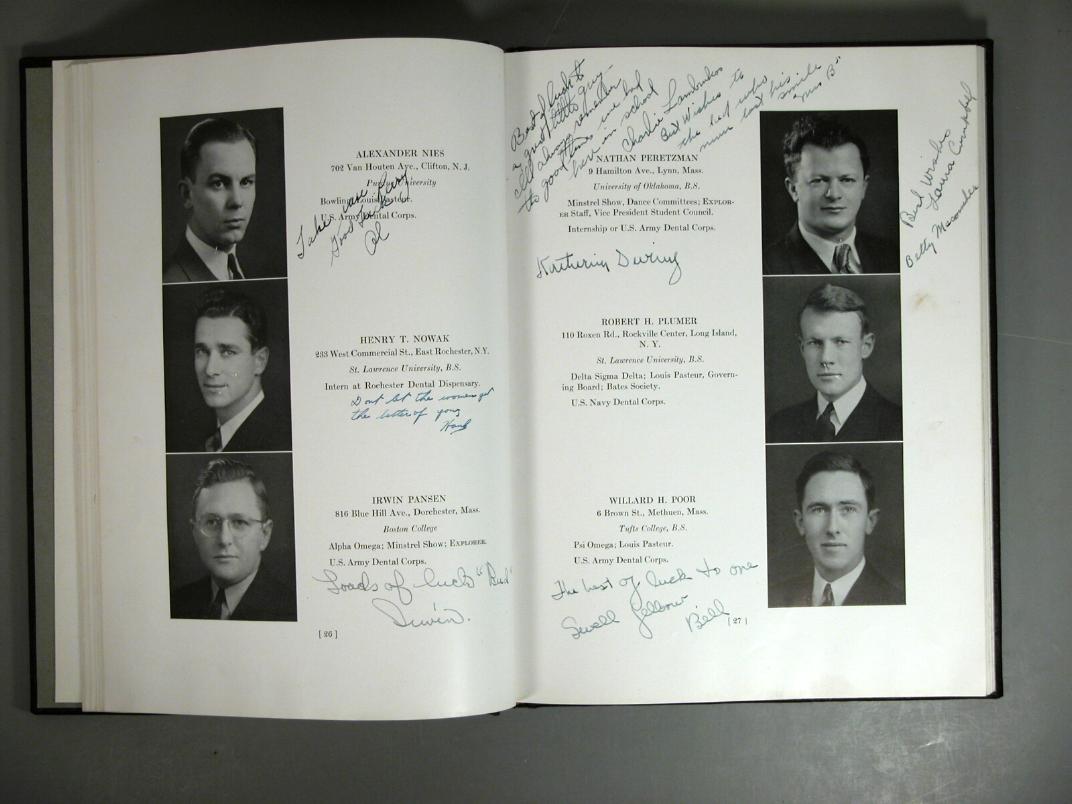 ALEXANDER NIES
702 Van Houten Ave., Clifton, N. J.
Purdue University
Bowling; Louis Pasteur.
U.S. Army Dental Corps.
Take care
Good Luck
Al
HENRY T. NOWAK
233 West Commercial St., East Rochester, N.Y.
St. Lawrence University, B.S.
Intern at Rochester Dental Dispensary.
Dont let the women get
the better of you
Hank
IRWIN PANSEN
816 Blue Hill Ave., Dorchester, Mass.
Boston College
Alpha Omega; Minstrel Show; EXPLORER.
U.S. Army Dental Corps.
Loads of luck "Bud"
Irwin.
[ 26 ]
Best of luck to
a great little guy—
I'll always remember
the good times we had
here in school
Charlie Lambrukos
Best Wishes to
the kid who
never lost his
smile
"Mrs B"
NATHAN PERETZMAN
9 Hamilton Ave., Lynn, Mass.
University of Oklahoma, B.S.
Minstrel Show, Dance Committees; EXPLOR-
ER Staff, Vice President Student Council.
Internship or U.S. Army Dental Corps.
Best Wishes
Laura Campbell
Betty
ROBERT H. PLUMER
110 Roxen Rd., Rockville Center, Long Island,
N. Y.
St. Lawrence University, B.S.
Delta Sigma Delta; Louis Pasteur, Govern-
ing Board; Bates Society.
U.S. Navy Dental Corps.
WILLARD H. POOR
6 Brown St., Methuen, Mass.
Tufts College, B.S.
Psi Omega; Louis Pasteur.
U.S. Army Dental Corps.
The best of luck to one
Swell fellow
Bill
[ 27 ]